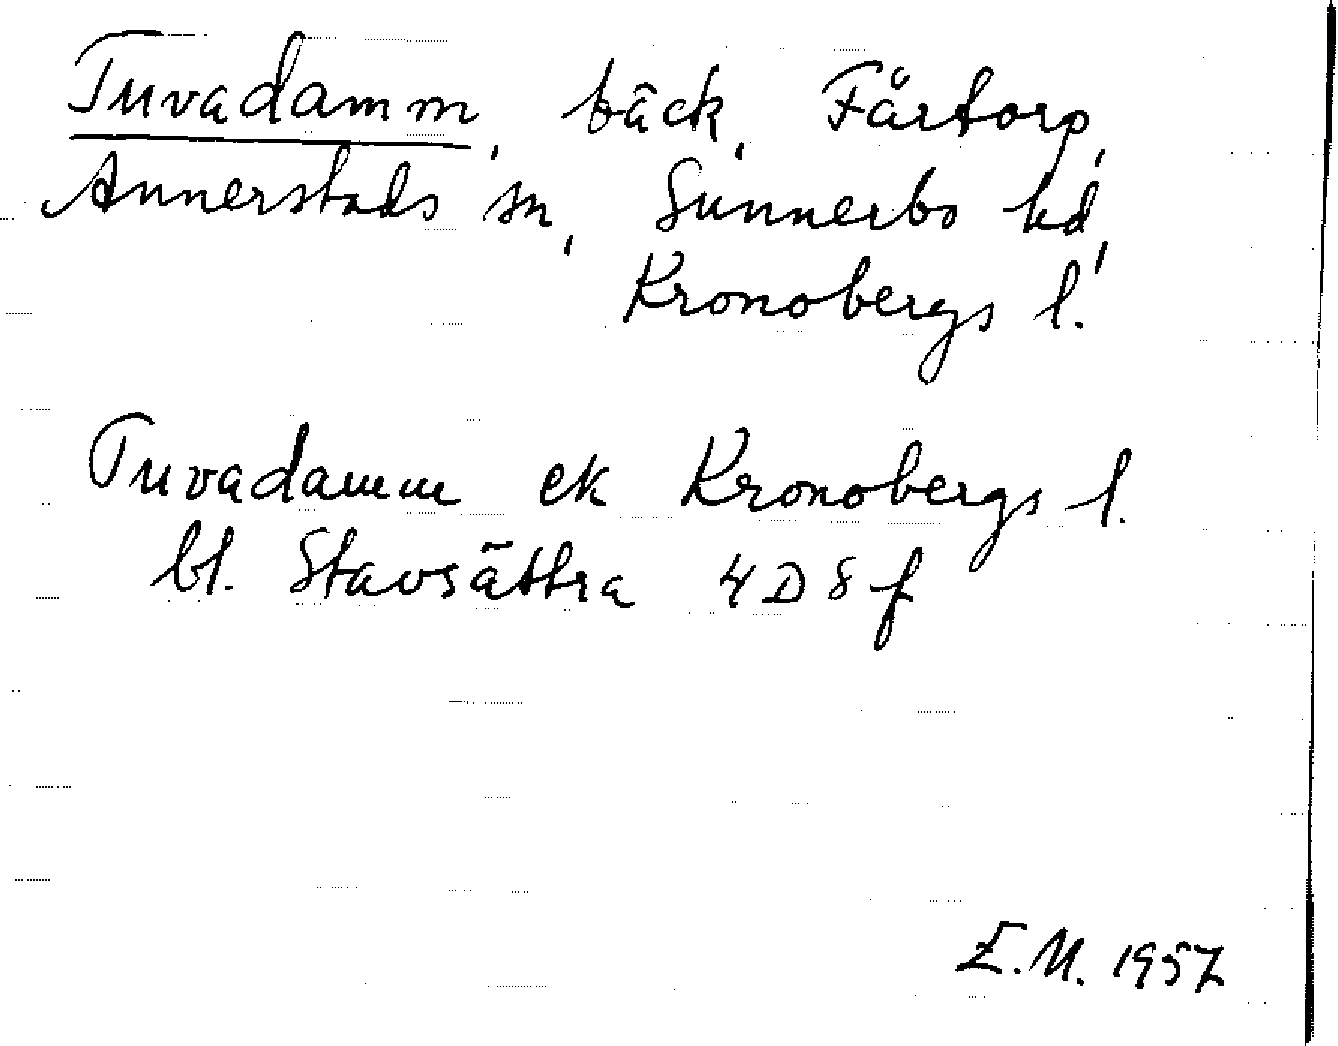 Tuvadamm, bäck, Färtorp,
Annerstads sn, Sunnerbo hd,
Kronobergs l.
Tuvadamm ek Kronobergs l.
bl. Stavsättra 4D8f
E.M. 1957